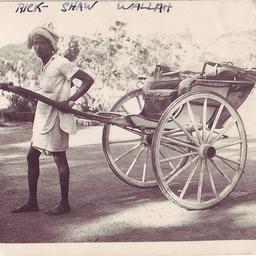 RICK- SHAW WALLAH